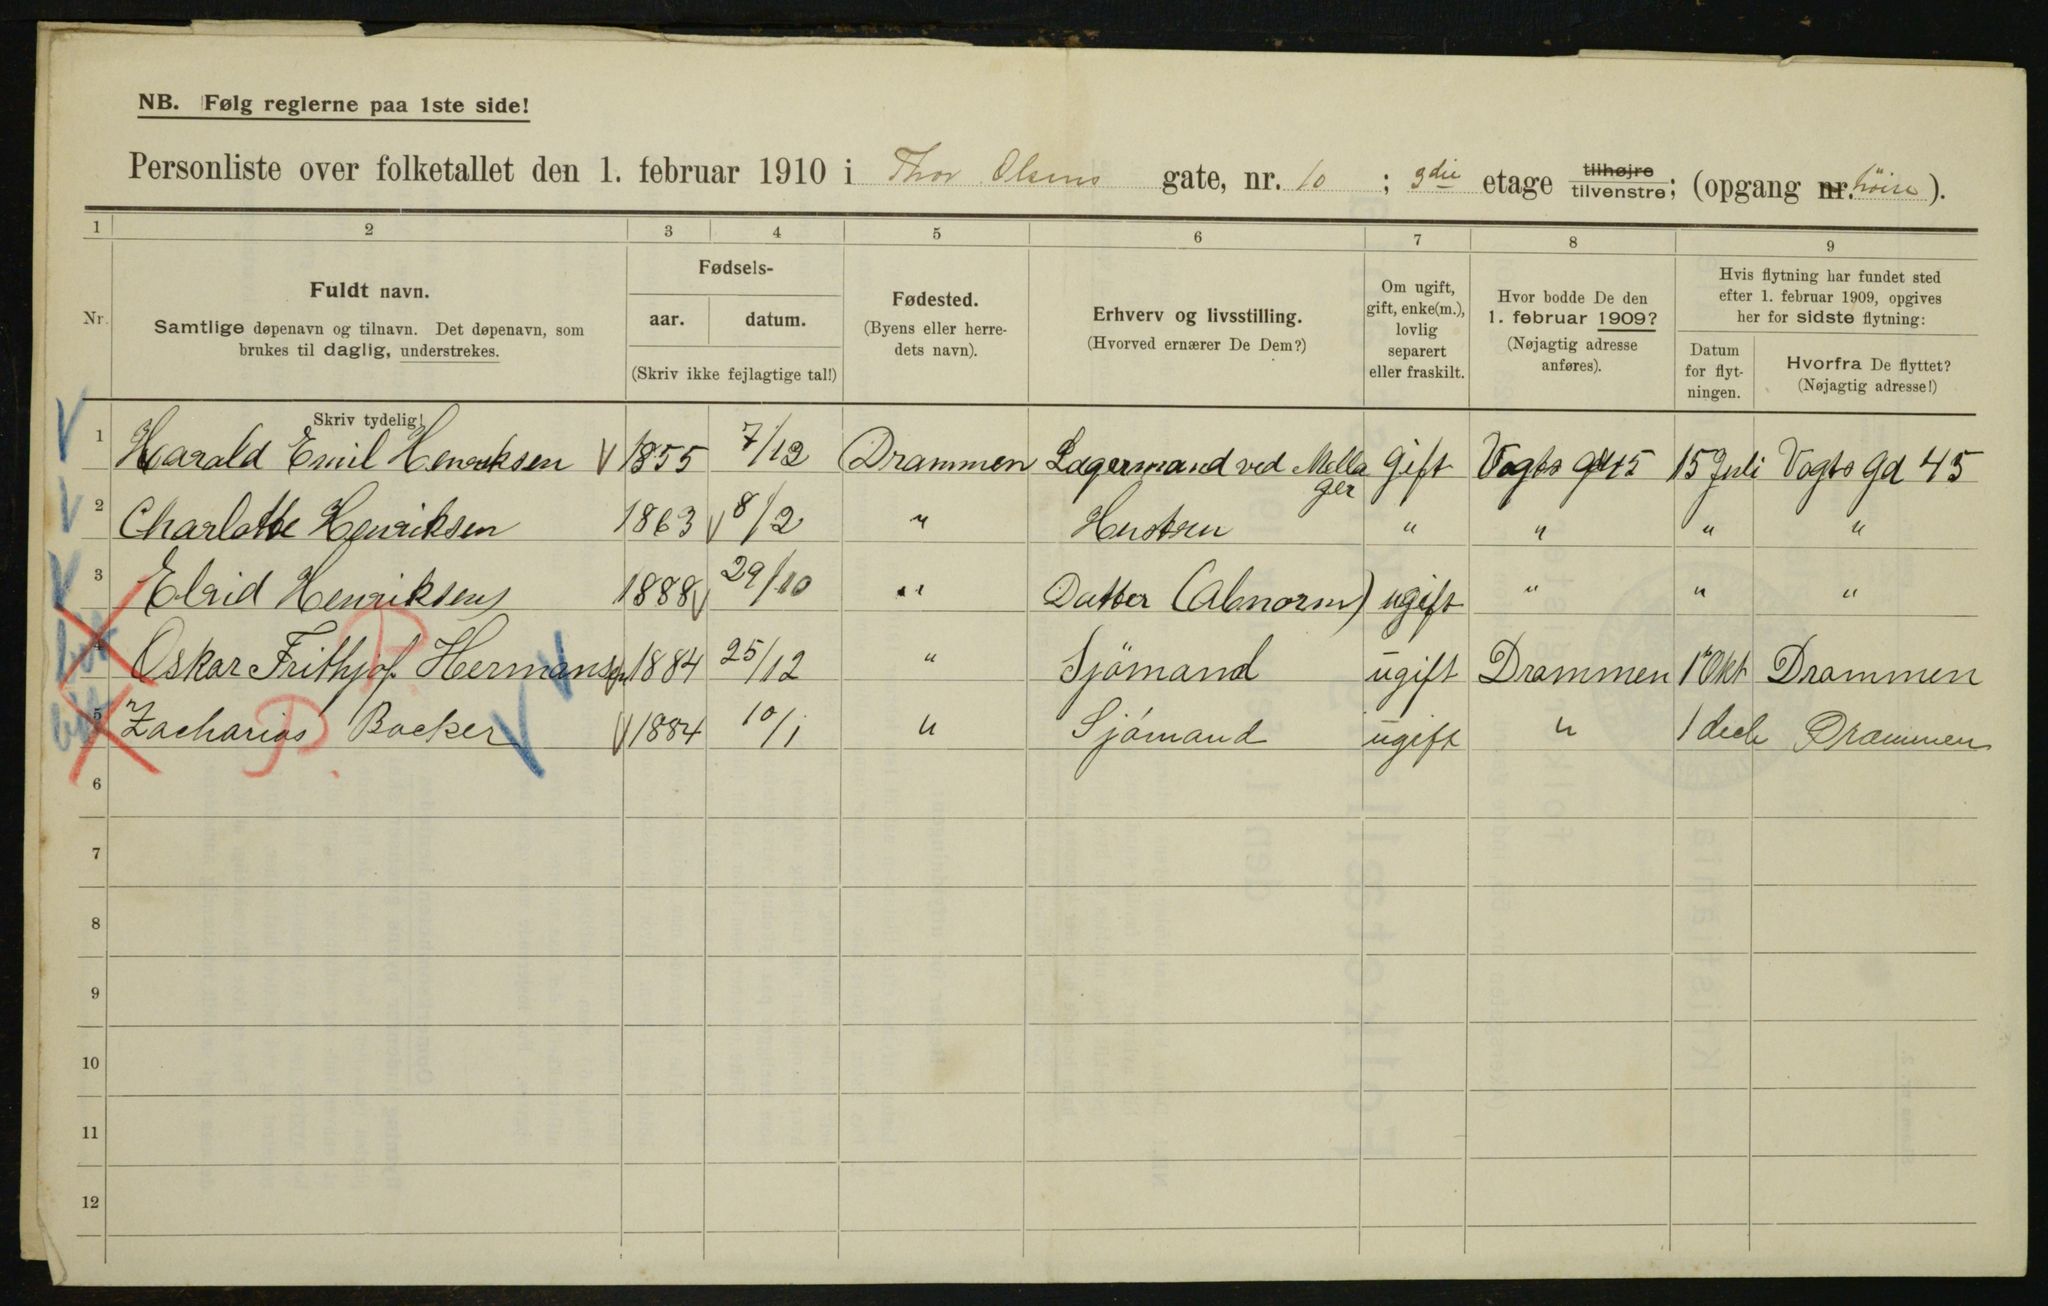 NB. Følg reglerne paa 1ste side!
Personliste over folketallet den 1. februar 1910 i Thor Olsens gate, nr. 10 ; 3die etage tilhøjre tilvenstre; (opgang nr. høire).
1 2 3 4 5 6 7 8 9
Nr.
Fuldt navn.
Samtlige døpenavn og tilnavn. Det døpenavn, som
brukes til daglig, understrekes.
Fødsels-
aar. datum.
(Skriv ikke fejlagtige tal!)
Fødested.
(Byens eller herre-
dets navn).
Erhverv og livsstilling.
(Hvorved ernærer De Dem?)
Om ugift,
gift, enke(m.),
lovlig
separert
eller fraskilt.
Hvor bodde De den
1. februar 1909?
(Nøjagtig adresse
anføres).
Hvis flytning har fundet sted
efter 1. februar 1909, opgives
her for sidste flytning:
Datum
for flyt-
ningen.
Hvorfra De flyttet?
(Nøjagtig adresse!)
Skriv tydelig!
1 Harald Emil Henriksen 1855 7/12 Drammen Lagermand ved Mella gift Vogts gd 45 15 Juli Vogts gd 45
ger
2 Charlotte Henriksen 1863 8/2 " Hustru " " " "
3 Henriksen 1888 29/10 " Datter (Abnorm) ugift " " "
4 Oskar Frithjof Hermansen 1884 25/12 " Sjömand ugift Drammen 1 Okt Drammen
5 Zacharias Backer 1884 10/1 " Sjómand ugift " 1 Drammen
6
7
8
9
10
11
12